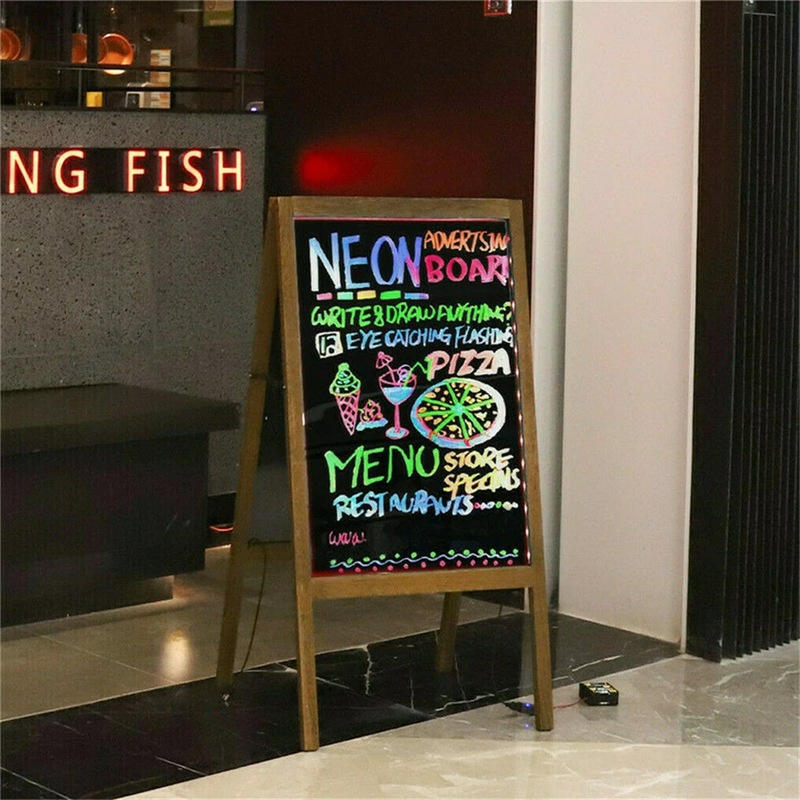 NG FISH
NEON ADVERTSIN
BOAR
WRITE & DRAW ANYTHING?
EYE CATCHING FLASHING
PIZZA
MENU STORE
SPECINS
RESTAURANTS